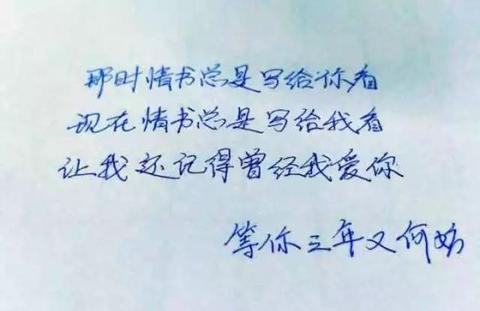 那时情书总是写给你看
现在情书总是写给我看
让我还记得曾经我爱你
等你三年又何妨